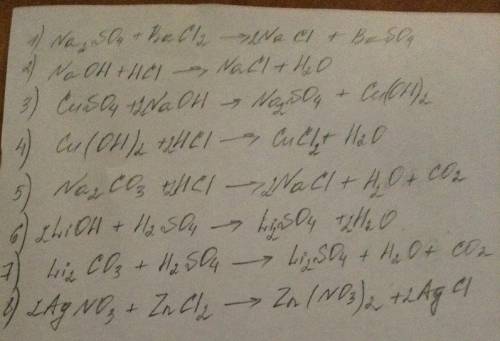 1) Na2SO4 + BaCl2 → 2NaCl + BaSO4
2) NaOH + HCl → NaCl + H2O
3) CuSO4 + 2NaOH → Na2SO4 + Cu(OH)2
4) Cu(OH)2 + 2HCl → CuCl2 + H2O
5) Na2CO3 + 2HCl → 2NaCl + H2O + CO2
6) 2LiOH + H2SO4 → Li2SO4 + 2H2O
7) Li2CO3 + H2SO4 → Li2SO4 + H2O + CO2
8) 2AgNO3 + ZnCl2 → Zn(NO3)2 + 2AgCl